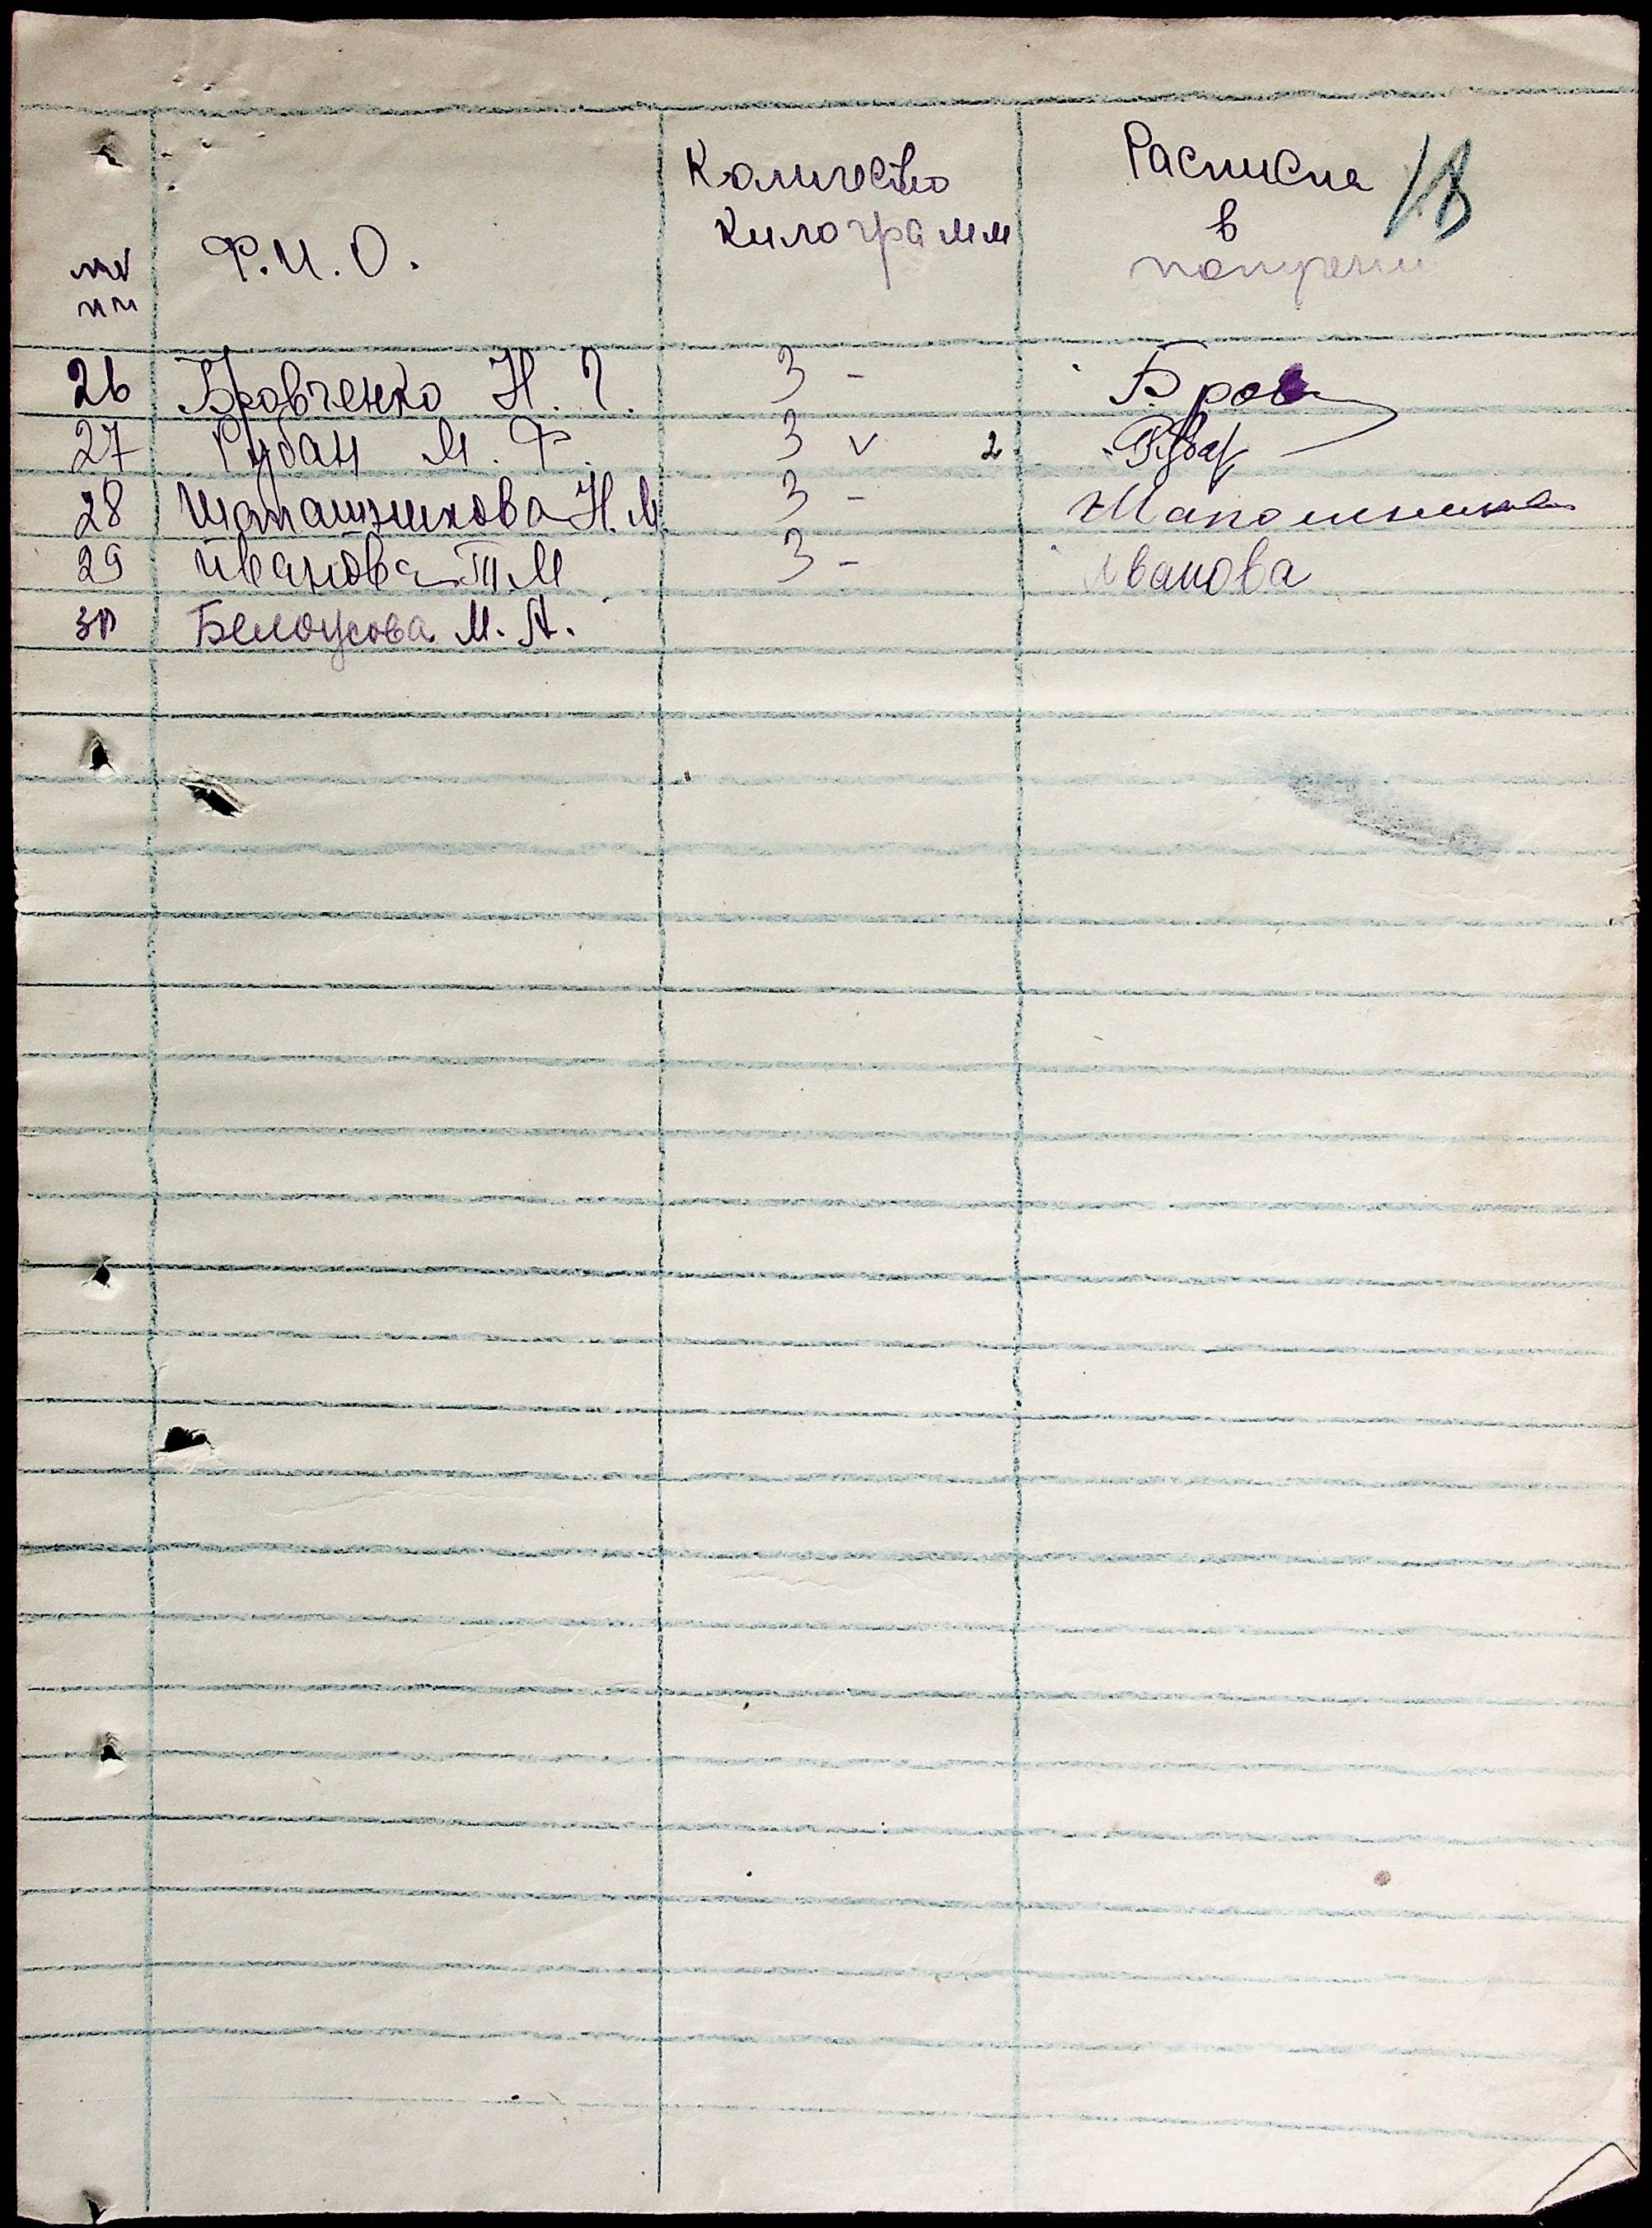 Количество Расписка 18
килограмм в
№№ Ф.И.О. получении
пп
26 Бровченко Н. Г. 3 - Бров
27 Рубан М. Ф. 3 v 2 Рубан
28 Шапашникова Н.М. 3 - Шапошникова
29 Иванова Т.М 3 - Иванова
30 Белоусова М. А.